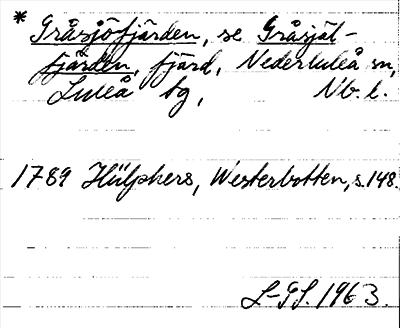 * Gråsjöfjärden, se Gråsjäl-
fjärden, fjärd, Nederluleå sn,
Luleå tg, Nb. l.
1789 Hülphers, Westerbotten, s. 148.
L-GS. 1963.